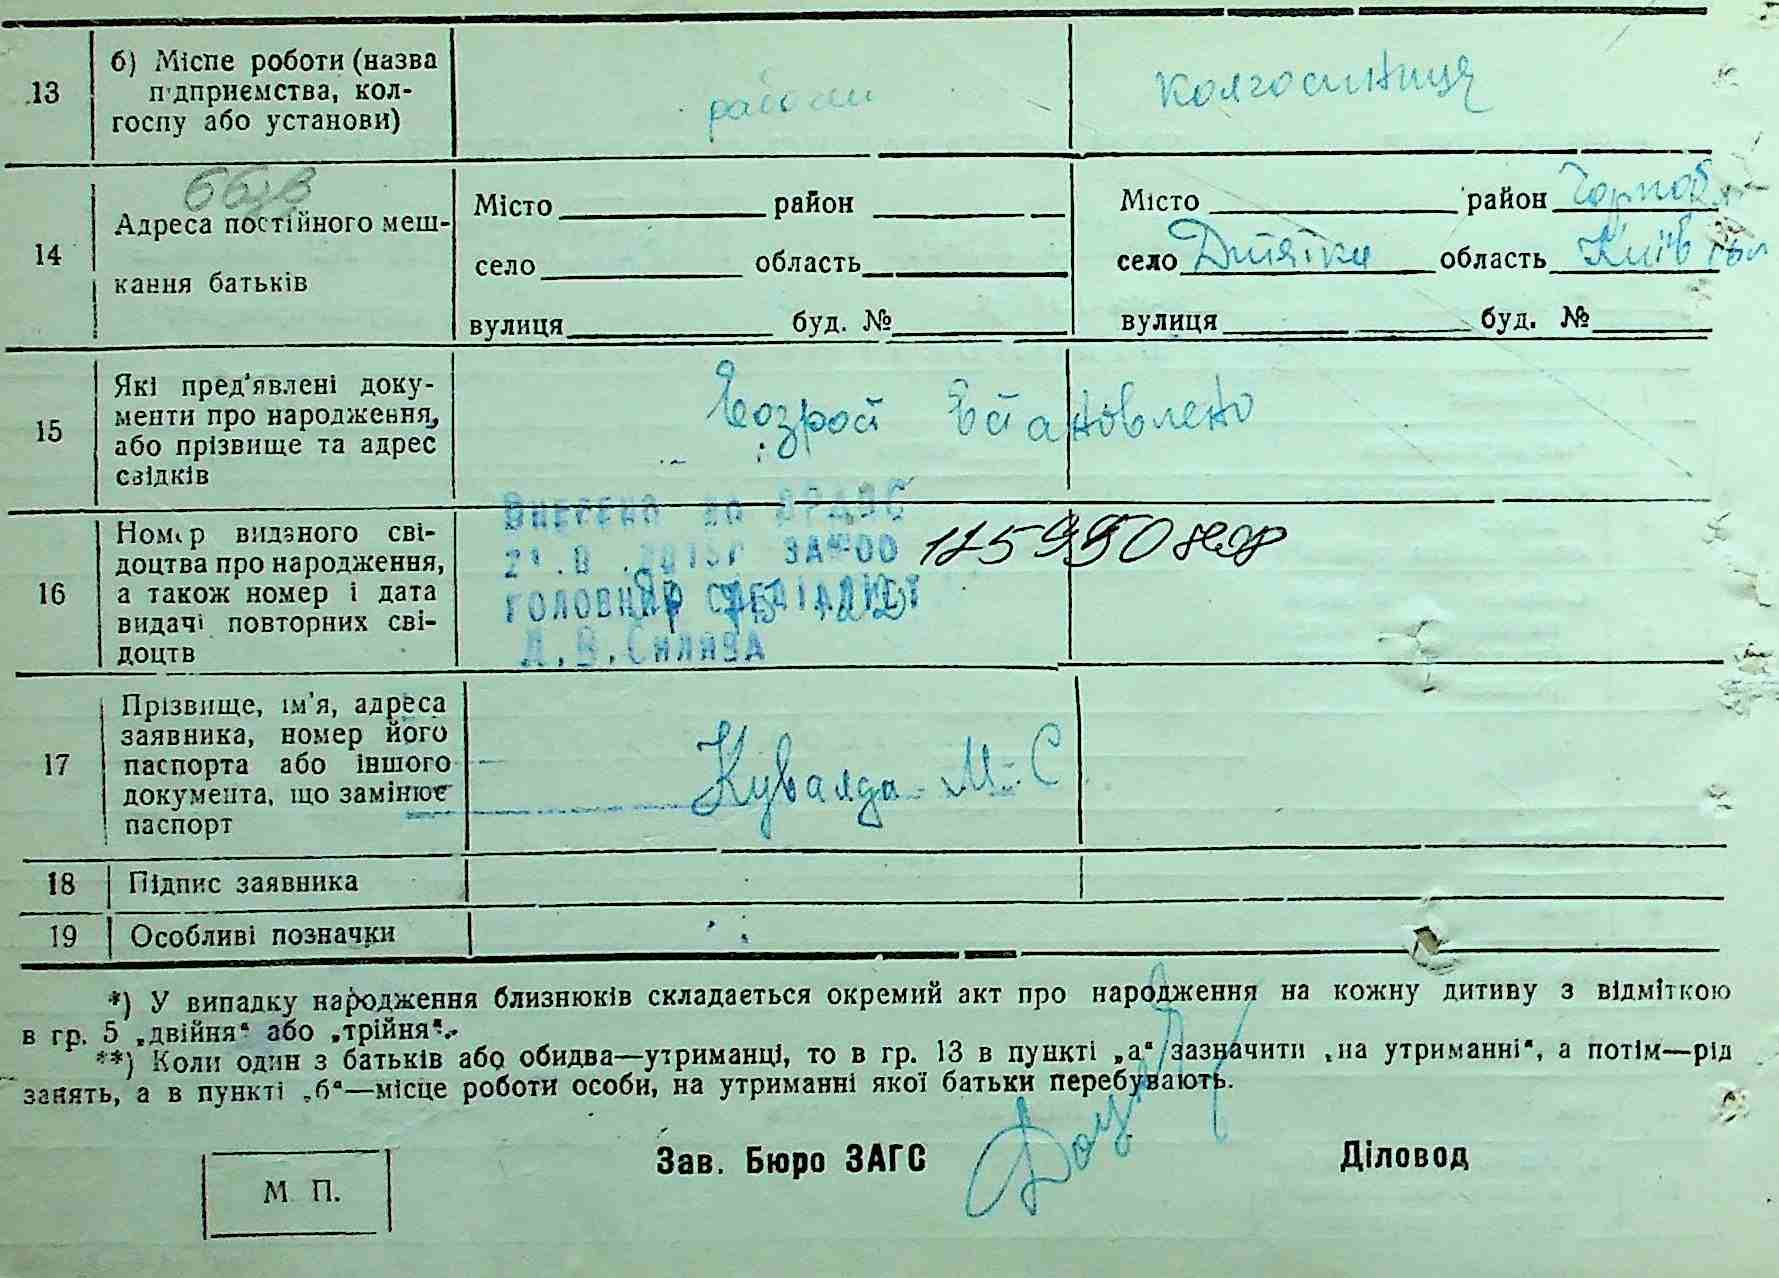 13
б) Місце роботи (назва
підприємства, кол-
госпу або установи)
колгоспниця
14
Адреса постійного меш-
кання батьків
Місто район
село область
вулиця буд. №
Місто район Чорноб
село Дитятки область Київ
вулиця буд. №
15
Які пред'явлені доку-
менти про народження,
або прізвище та адрес
свідків
Возрост Встановлено
16
Номер виданого сві-
доцтва про народження,
а також номер і дата
видачі повторних сві-
доцтв
Внесено до ДРАЦС
ЗА №00
ГОЛОВНИЙ СПЕЦІАЛІСТ
17
Прізвище, ім'я, адреса
заявника, номер його
паспорта або іншого
документа, що замінює
паспорт
Кувалда М. С
18
Підпис заявника
19
Особливі позначки
*) У випадку народження близнюків складається окремий акт про народження на кожну дитину з відміткою
в гр. 5 „двійня“ або „трійня“.
**) Коли один з батьків або обидва—утриманці, то в гр. 13 в пункті „а“ зазначити „на утриманні“, а потім—рід
занять, а в пункті „б“—місце роботи особи, на утриманні якої батьки перебувають.
Зав. Бюро ЗАГС
Діловод
М П.